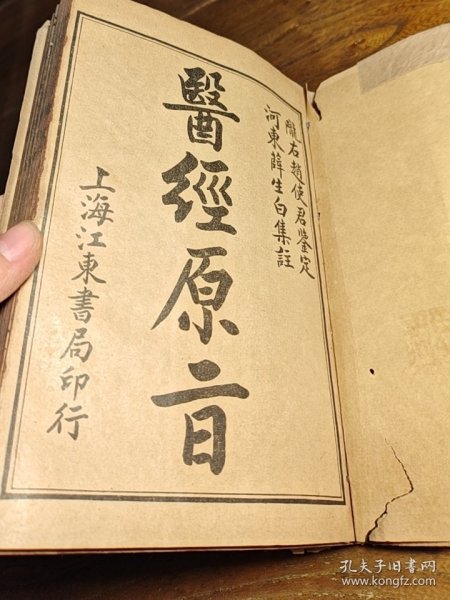 隴右趙使君鑒定
河東薛生白集註
醫經原旨
上海江東書局印行
孔夫子旧书网
www.kongfz.com